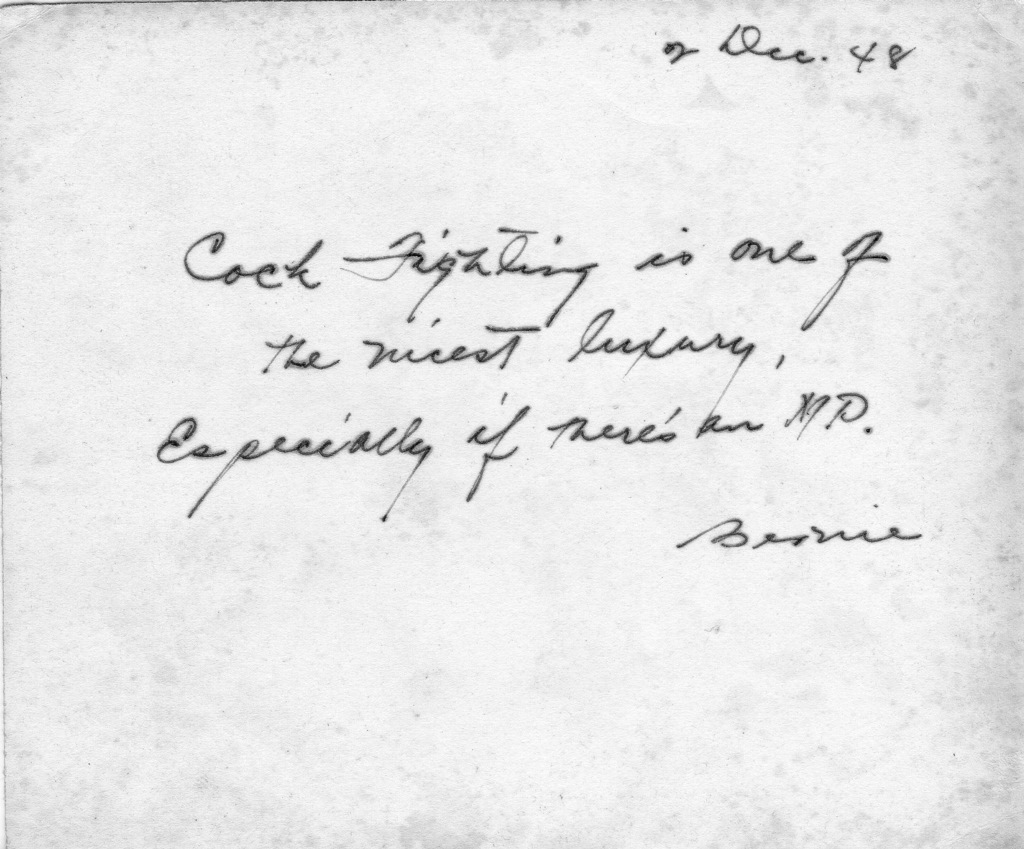 2 Dec. 48
Cock Fighting is one of
the nicest luxury,
Especially if there's an MP.
Bernie